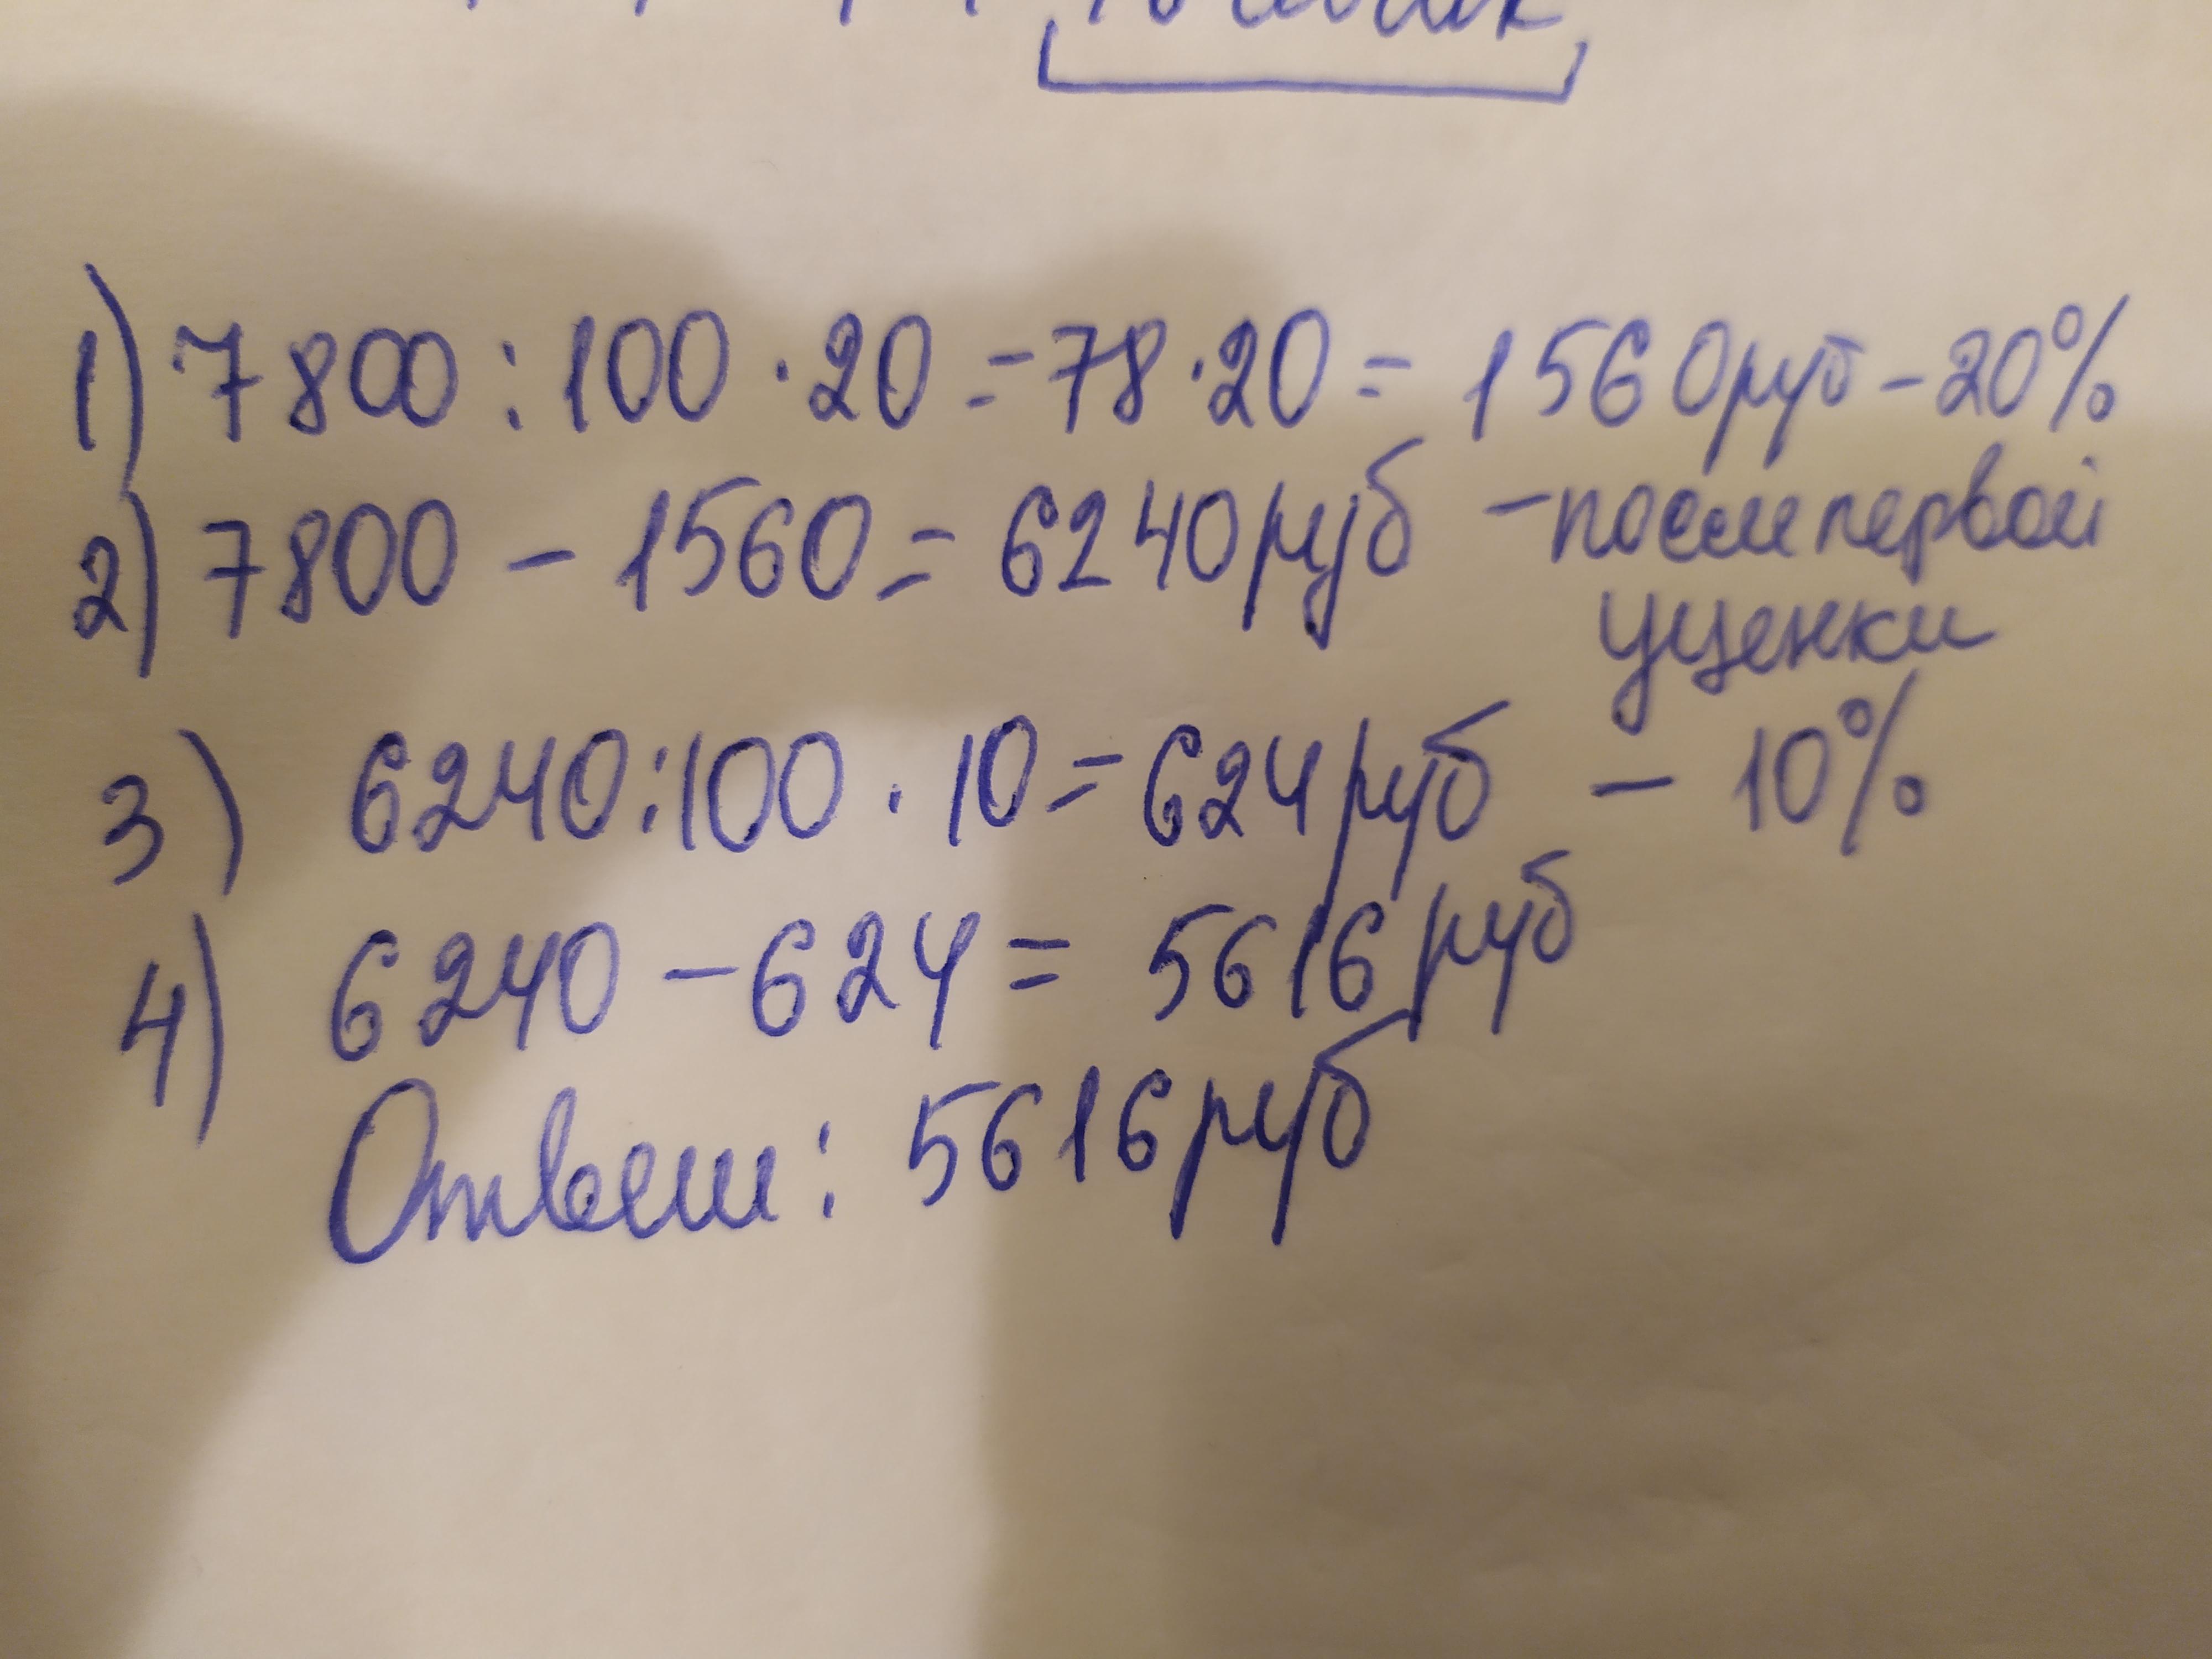 1) 7800 : 100 · 20 = 78 · 20 = 1560 руб - 20%
2) 7800 - 1560 = 6240 руб - после первой
уценки
3) 6240 : 100 · 10 = 624 руб - 10%
4) 6240 - 624 = 5616 руб
Ответ: 5616 руб